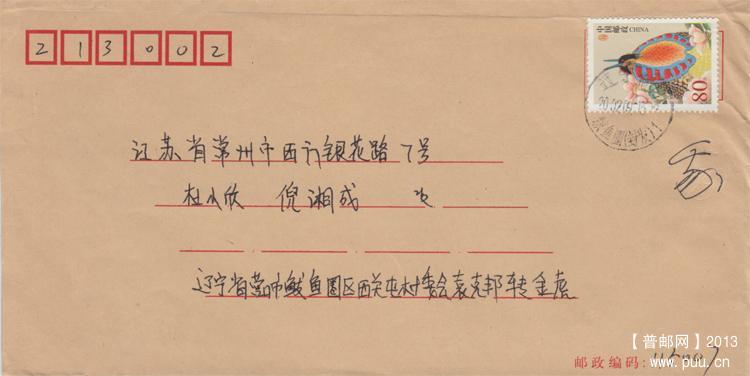 213002
中国邮政 CHINA
80
江苏省常州市西新银花路7号
杜小欣 倪湘成 收
辽宁省营口市鲅鱼圈区西关屯村委会袁克邦转金虎
邮政编码:
【普邮网】2013
www.puu.cn